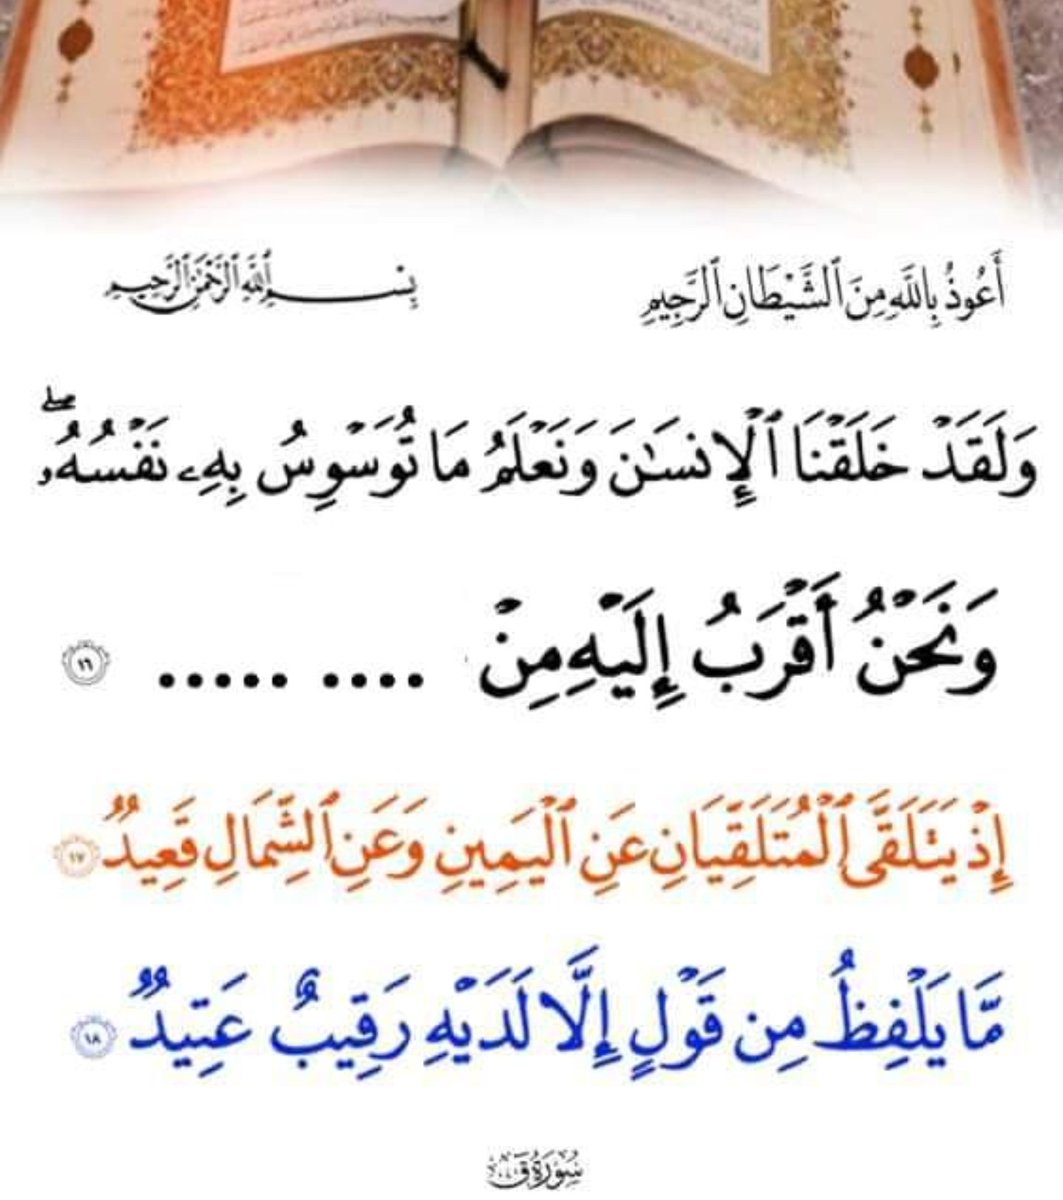 أَعُوذُ بِاللَّهِ مِنَ ٱلشَّيْطَانِ ٱلرَّجِيمِ بِسْمِ ٱللَّهِ ٱلرَّحْمَٰنِ ٱلرَّحِيمِ
وَلَقَدْ خَلَقْنَا ٱلْإِنسَٰنَ وَنَعْلَمُ مَا تُوَسْوِسُ بِهِۦ نَفْسُهُۥۖ
وَنَحْنُ أَقْرَبُ إِلَيْهِ مِنْ .... ..... ١٦
إِذْ يَتَلَقَّى ٱلْمُتَلَقِّيَانِ عَنِ ٱلْيَمِينِ وَعَنِ ٱلشِّمَالِ قَعِيدٌ ١٧
مَّا يَلْفِظُ مِن قَوْلٍ إِلَّا لَدَيْهِ رَقِيبٌ عَتِيدٌ ١٨
سُورَةُ ق